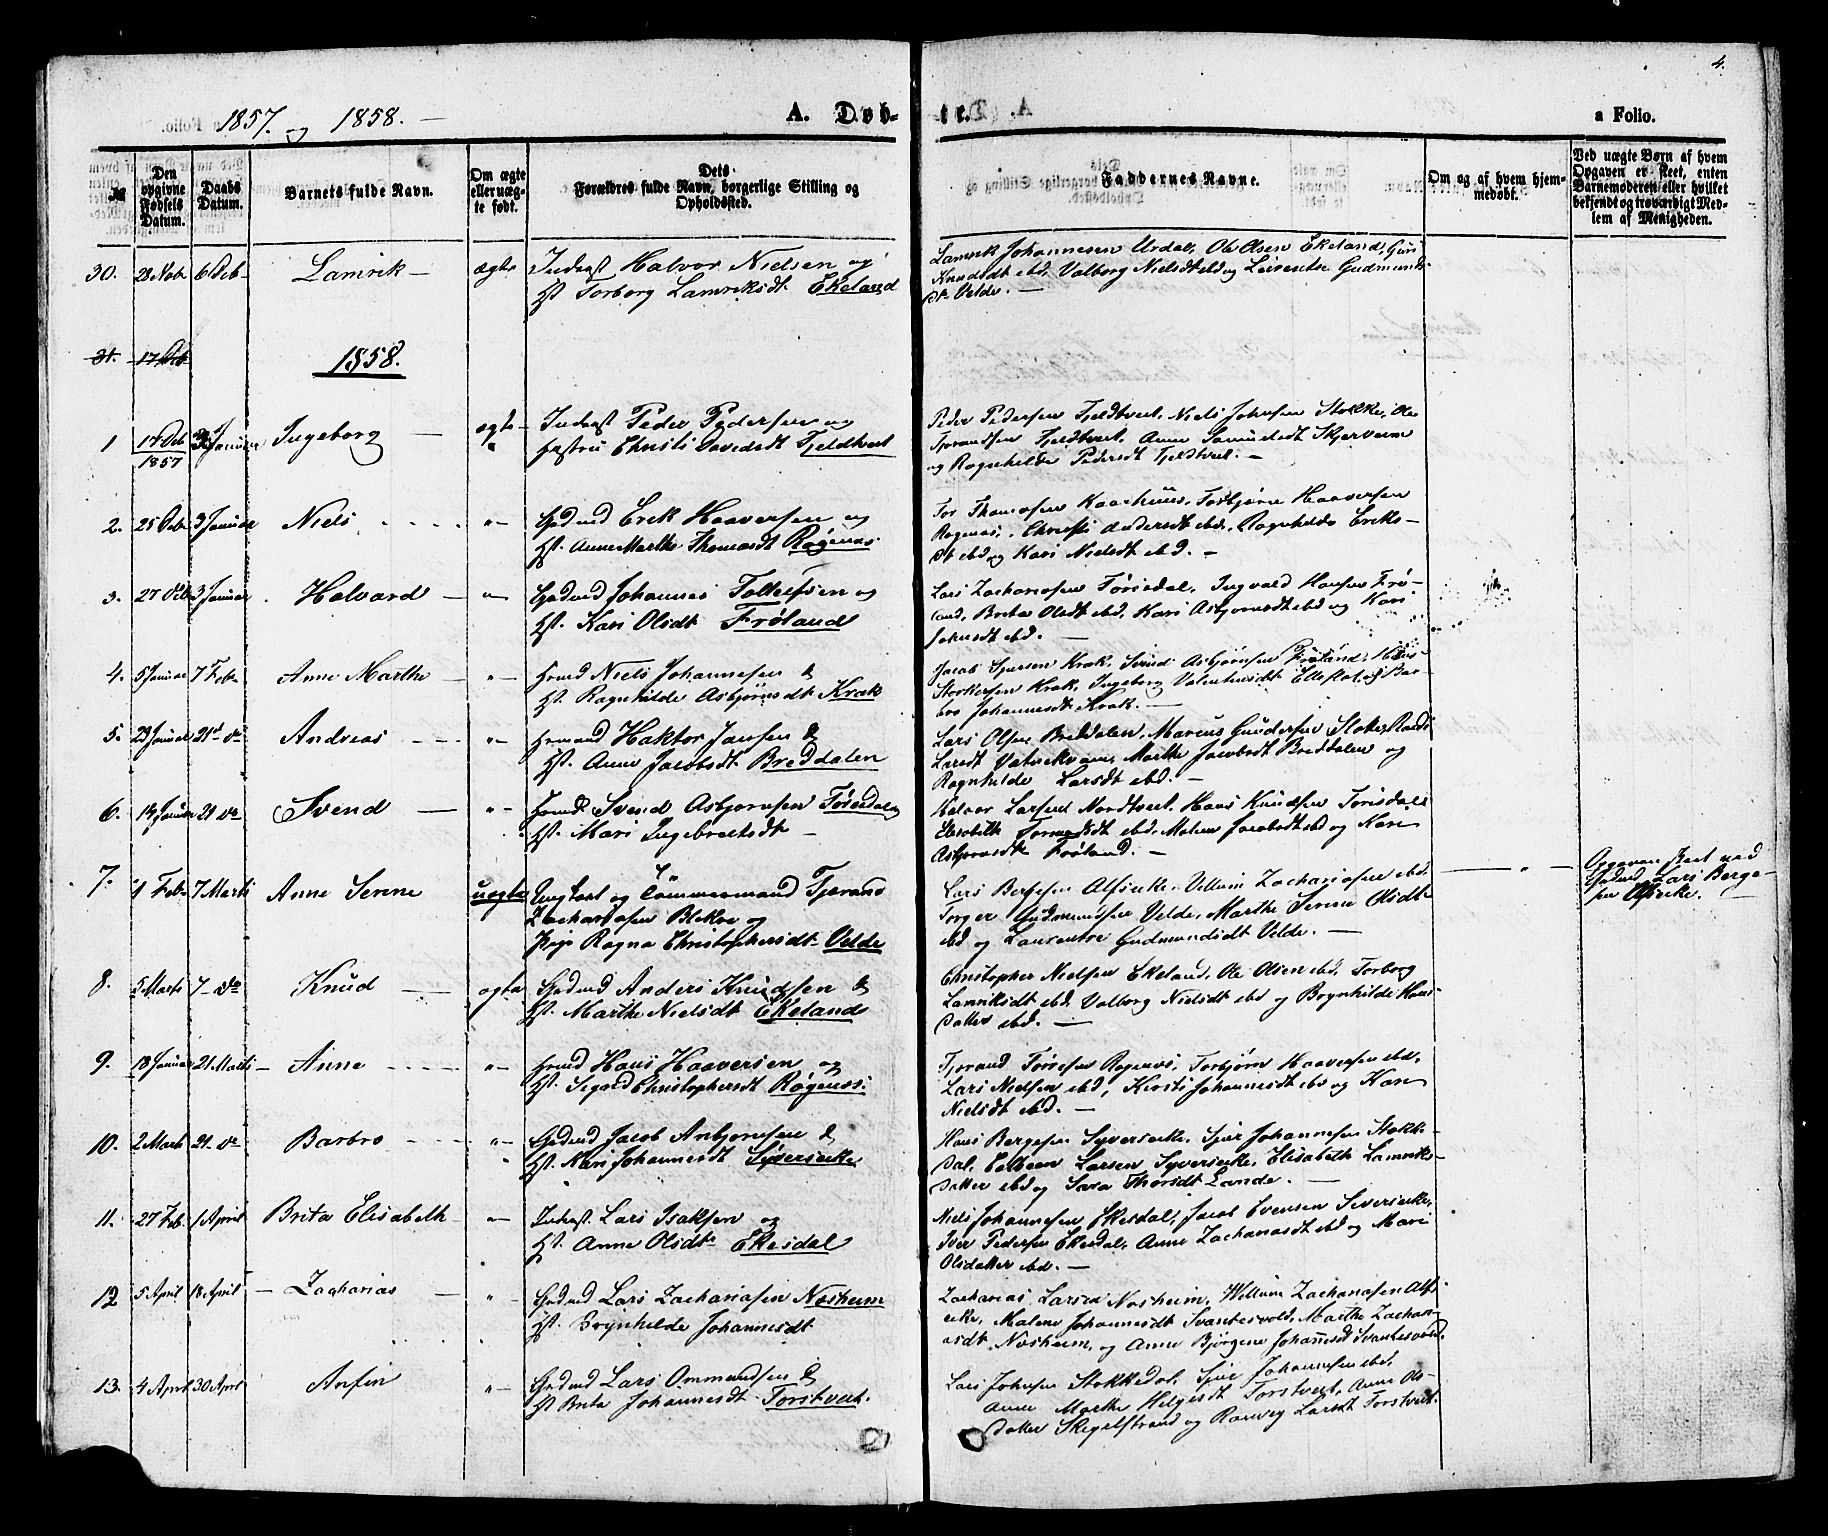 4.
1857. og 1858. —
A. Døb-
te.
a Folio.
№
Den opgivne Fødsels Datum.
Daabs Datum.
Barnets fulde Navn.
Om ægte eller uægte født.
Dets Forældres fulde Navn, borgerlige Stilling og Opholdsted.
Faddernes Navne.
Om og af hvem hjemmedøbt.
Ved uægte Børn af hvem Opgaven er skeet, enten Barnemoderen eller hvilket bekjendt og troværdigt Medlem af Menigheden.
30. 28 Nov. 6 Deb Lamrik — ægte
Indrest Halvor Nielsen og
Hst. Torborg Lamriksdt Ekeland
Lamrik Johannesen Urdal, Ole Olsen Ekeland, Guri
Knudsdt ebd, Valborg Nielsdt ebd og Laurentse Gudmunds-
dt. Velde. —
31. 17 Deb
1858.
1 17 Deb 1857 Januar Ingeborg — ægte
Indrest Peder Pedersen og
Hustru Christi Davidsdt Fjeldtveit
Peder Pedersen Fjeldtveit, Niels Johnsen Stokke, Ole
Tjerandsen Fjeldtveit, Anne Samuelsdt Skjerveim
og Ragnhilde Pedersdt Fjeldtveit. —
2. 25 Deb. 3 Januar Niels - - - - "—
Gadmd Erik Haaversen og
Hst. Anne Marthe Thomasdt Røgenes.
Tor Thomasen Kaarhuus, Torbjørn Haaversen
Røgenes, Christi Andersdt ebd, Ragnhilde Eriks-
dt ebd og Kari Nielsdt ebd. —
3. 27 Deb 3 Januar Halvard — "—
Gadmd Johannes Tollefsen og
Hst. Kari Olsdt Frøland
Lars Zachariasen Førisdal, Ingvald Hansen Frø-
land, Brita Olsdt ebd, Kari Asbjørnsdt ebd og Kari
Johnsdt ebd. —
4. 5 Januar 7 Feb. Anne Marthe — "—
Hmd Niels Johannesen &
Hst. Ragnhilde Asbjørnsdt Krak
Jacob Sjursen Krak, Svend Asbjørnsen Frøland,
Storkersen Krak, Ingeborg Valentinsdt Ellestad, og Bar-
bro Johannesdt Krak. —
5. 23 Januar 21 do Andreas - - - - "—
Hmand Haktor Jansen &
Hst. Anne Jacobsdt Breddalen
Lars Olsen Breddalen, Marius Gundersen Stokke, Randi
Larsdt Vatnekvam, Marthe Jacobsdt Breddalen og
Ragnhilde Larsdt ebd. —
6. 14 Januar 21 do Svend — "—
Hmd Svend Asbjørnsen Førisdal og
Hst. Mari Ingebretsdt —
Halvor Larsen Nordtveit, Hans Knudsen Førisdal,
Elisabeth Tormodsdt ebd, Malene Jacobsdt ebd og Kari
Asbjørnsdt Frøland. —
7. 4 Feb. 7 Marts Anne Serine uægte
Ungkarl og Tømmermand Tjerand
Zachariasen Blikra og
Pige Ragna Christophersdt Velde
Lars Bergesen Alfseike, Vellum Zachariasen ebd,
Torger Gudmundsen Velde, Marthe Serine Olsdt
ebd og Laurentse Gudmundsdt Velde. —
— " —
Opgaven skeet ved
Gadmd Lars Berge-
sen Alfseike. —
8. 5 Marts 7 do Knud — ægte
Gadmd Anders Knudsen &
Hst. Marthe Nielsdt Ekeland
Christopher Nielsen Ekeland, Ole Olsen ebd, Torborg
Lamriksdt ebd, Valborg Nielsdt ebd og Brynhilde Hans-
datter ebd. —
9. 18 Januar 21 Marts — Anne - - - - "—
Hmd Hans Haaversen og
Hst. Sigrid Christophersdt Røgenes.
Tjerand Tørresen Røgenes, Torbjørn Haaversen ebd,
Lars Nielsen ebd, Kirsti Johannesdt ebd og Kari
Nielsdt ebd. —
10. 2 Marts 21 do Barbro - - - - "—
Gadmd Jacob Anbjørnsen &
Hst. Kari Johannesdt Syverseike
Hans Bergesen Syverseike, Sjur Johannesen Stokke-
dal, Larsen Syverseike, Elisabeth Lamriks-
datter ebd og Sara Thorsdt Lande. —
11. 27 Feb. 1 April Brita Elisabeth "—
Indrest. Lars Isaksen og
Hst. Anne Olsdt Ekesdal
Niels Johannesen Ekesdal, Jacob Svensen Siverseike,
Iver Pedersen Ekesdal, Anne Zachariasdt ebd og Mari
Olsdatter ebd. —
12 5 April 18 April — Zacharias — "—
Gadmd Lars Zachariasen Næsheim
Hst. Brynhilde Johannesdt
Zacharias Larsen Næsheim, Wellum Zachariasen Alfs-
eike, Malene Johannesdt Svanbesvold, Marthe Zachari-
asdt Næsheim, og Anne Bjørgine Johannesdt Svanbesvold.
13. 4 April 30 April Anfin "—
Gadmd Lars Ommundsen &
Hst Brita Johannesdt Torstveit.
Lars Johnsen Stokkedal, Sjur Johannesen ebd,
Anne Marthe Helgesdt Torstveit, Anne Ols-
datter Skegelstrand og Ranveig Larsdt Torstveit.